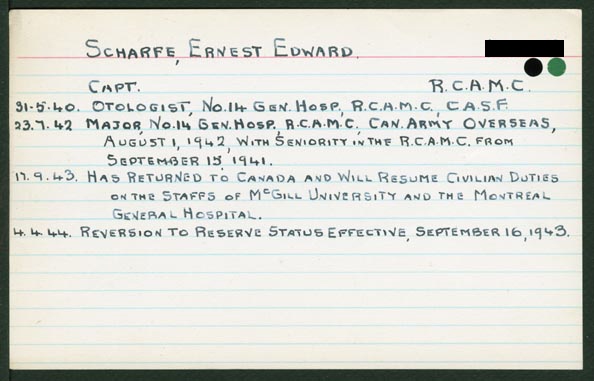 SCHARFE, ERNEST EDWARD.
CAPT. R.C.A.M.C.
31.5.40. OTOLOGIST, No.14 GEN. HOSP., R.C.A.M.C., C.A.S.F.
23.7.42 MAJOR, No.14 GEN. HOSP., R.C.A.M.C., CAN. ARMY OVERSEAS,
AUGUST 1, 1942, WITH SENIORITY IN THE R.C.A.M.C. FROM
SEPTEMBER 15, 1941.
17.9.43. HAS RETURNED TO CANADA AND WILL RESUME CIVILIAN DUTIES
ON THE STAFFS OF McGILL UNIVERSITY AND THE MONTREAL
GENERAL HOSPITAL.
4.4.44. REVERSION TO RESERVE STATUS EFFECTIVE, SEPTEMBER 16, 1943.